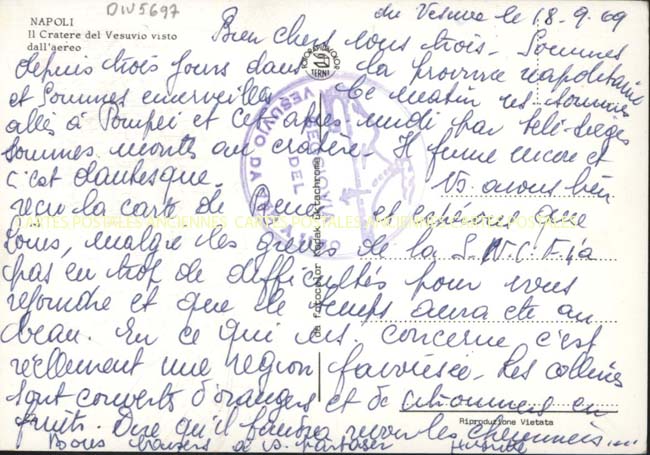 DIV5697
NAPOLI
Il Cratere del Vesuvio visto
dall'aereo
du Vesuve le 18-9-69
Bien chers vous trois - Sommes
depuis trois jours dans la province napolitaine
et sommes emerveillés. Ce matin ns sommes
allés à Pompei et cet après midi par télé-sièges
sommes montés au cratère - Il fume encore et
c'est dantesque. Vs avons bien
reçu la carte de et espérons que
Louis, malgré les grèves de la S.N.C.F. a
pas eu trop de difficultés pour vous
rejoindre et que le temps aura été au
beau. En ce qui ns concerne c'est
réellement une région favorisée - Les collines
sont couverts d'orangers et de citronniers en
fruits. Dire qu'il faudra revoir les cheminées...
Bons baisers à vs partager
Riproduzione Vietata
da fotocolor Kodak Ektachrome
TERNI
CARTES POSTALES ANCIENNES CARTES POSTALES ANCIENNES CARTES POSTALES ANCIENNES